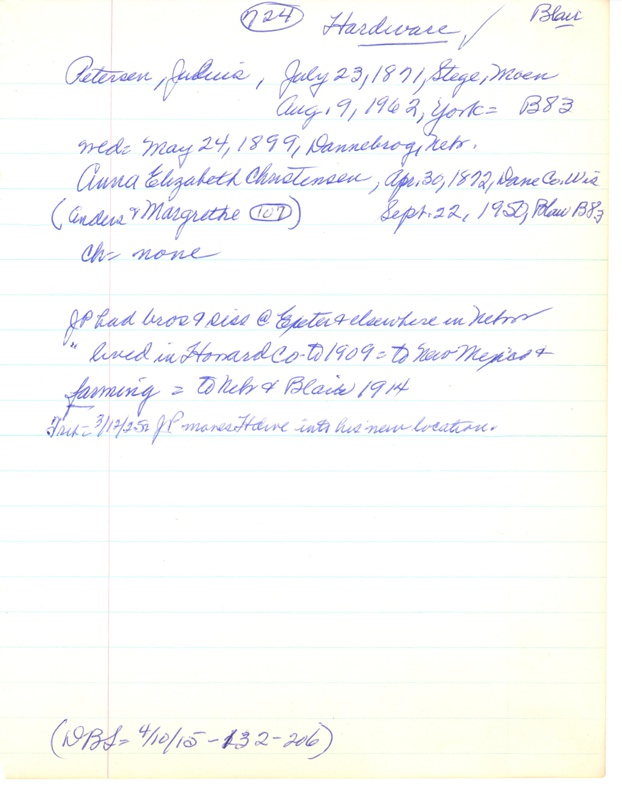 724 Hardware ✓ Blair
Petersen, Julius, July 23, 1871, Stege, Moen
Aug. 9, 1962, York = B83
wed = May 24, 1899, Dannebrog, Nebr.
Anna Elizabeth Christensen, Apr. 30, 1872, Dane Co. Wis
(Anders & Margrethe 107) Sept. 22, 1950, Blair B83
Ch = none
JP had bros & siss @ Exeter & elsewhere in Nebr
" lived in Howard Co - to 1909 = to New Mexico &
farming = to Nebr & Blair 1914
= 3/12/25 = JP moves Hdwe into his new location.
(DBS = 4/10/15 - 132 - 206)